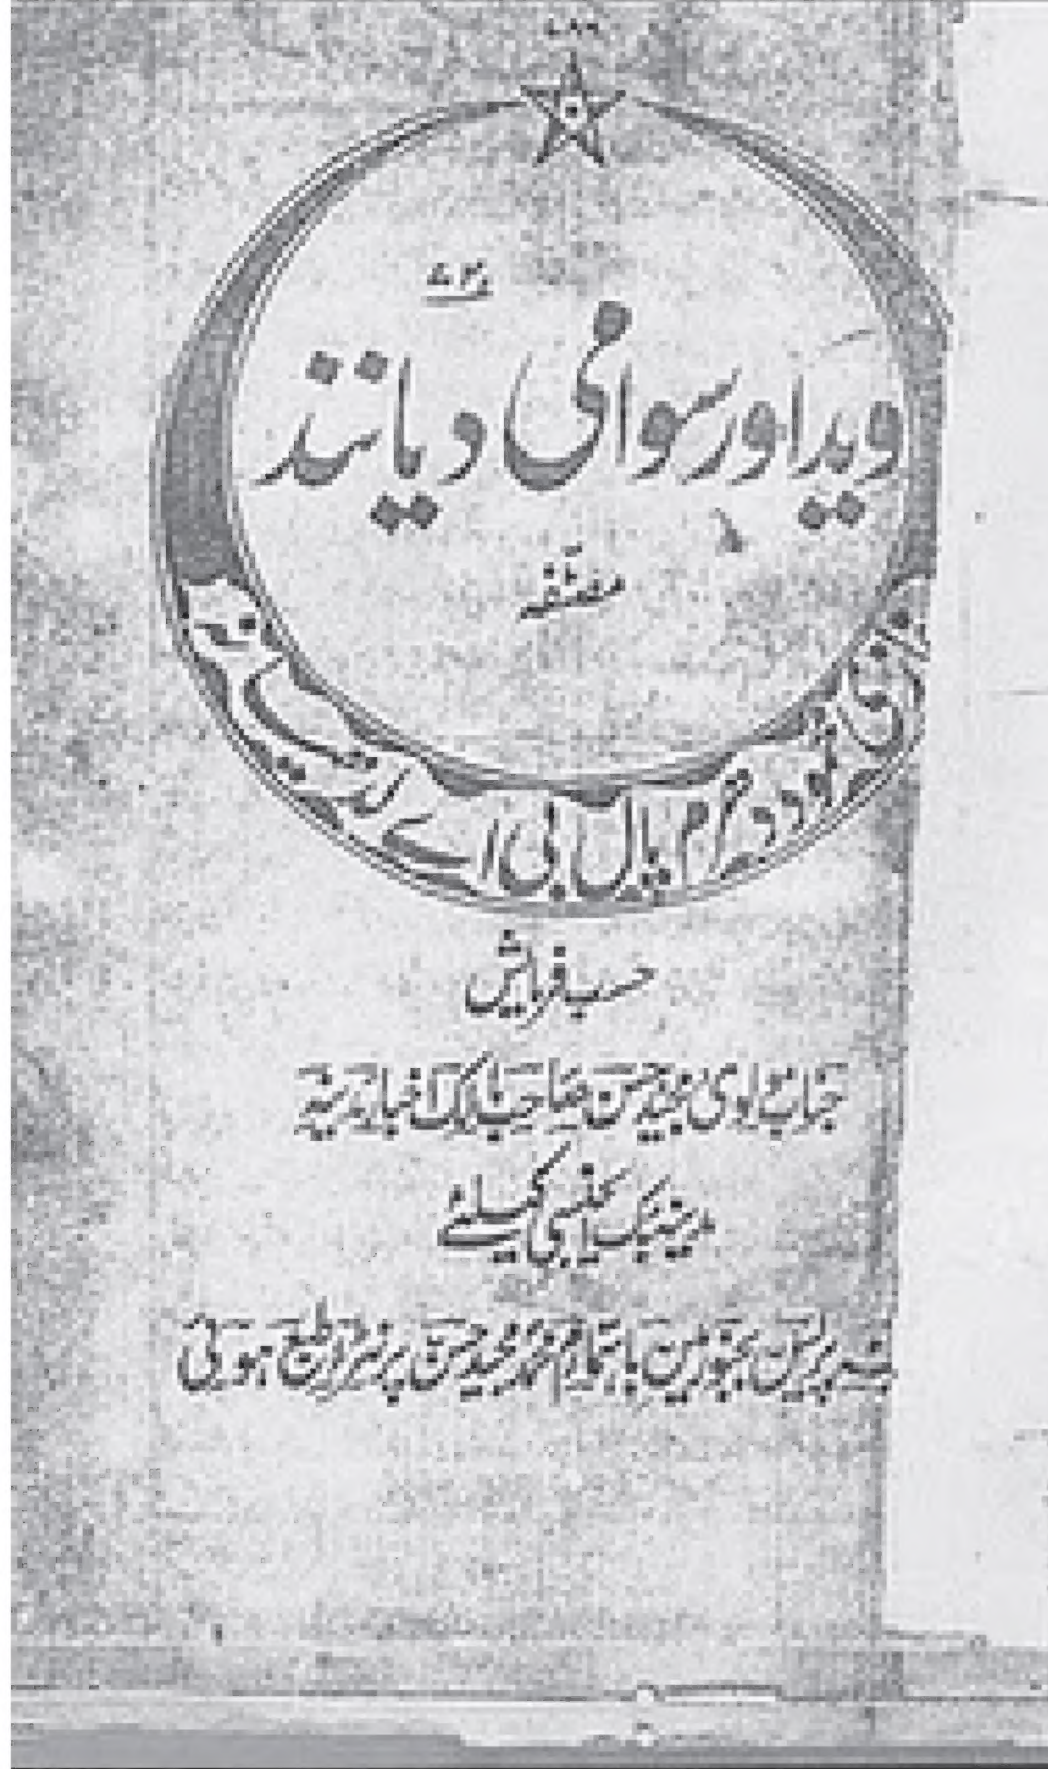 ۷۸۶
وید اور سوامی دیانند
مصنفہ
غازی محمود دھرم پال بی اے
حسب فرمایش
جناب مولوی مجید حسن صاحب مالک اخبار مدینہ
مدینہ بک ایجنسی کیلئے
پریس بجنور مین باہتمام محمد مجید حسن پرنٹر طبع ہوئی